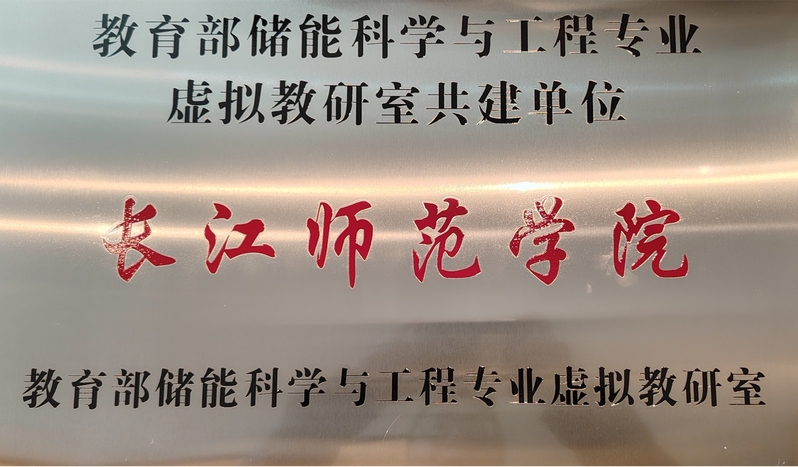 教育部储能科学与工程专业
虚拟教研室共建单位
长江师范学院
教育部储能科学与工程专业虚拟教研室